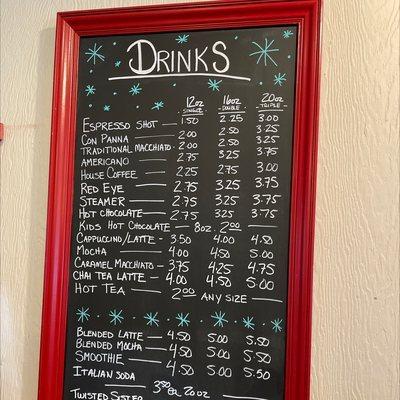 DRINKS
12oz 16oz 20oz
SINGLE DOUBLE TRIPLE
ESPRESSO SHOT 1.50 2.25 3.00
CON PANNA 2.00 2.50 3.25
TRADITIONAL MACCHIATO 2.00 2.50 3.25
AMERICANO 2.75 3.25 3.75
HOUSE COFFEE 2.25 2.75 3.00
RED EYE 2.75 3.25 3.75
STEAMER 2.75 3.25 3.75
HOT CHOCOLATE 2.75 3.25 3.75
KIDS HOT CHOCOLATE 8oz. 2.00
CAPPUCCINO/LATTE 3.50 4.00 4.50
MOCHA 4.00 4.50 5.00
CARAMEL MACCHIATO 3.75 4.25 4.75
CHAI TEA LATTE 4.00 4.50 5.00
HOT TEA 2.00 ANY SIZE
* * * SLUSH * *
BLENDED LATTE 4.50 5.00 5.50
BLENDED MOCHA 4.50 5.00 5.50
SMOOTHIE 4.50 5.00 5.50
ITALIAN SODA 3.50 20oz
TWISTED SISTER